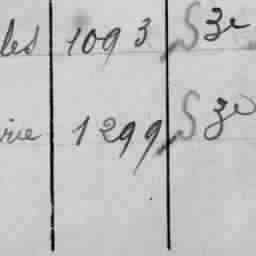 les 1093 S 3e
rie 1299 S 3e